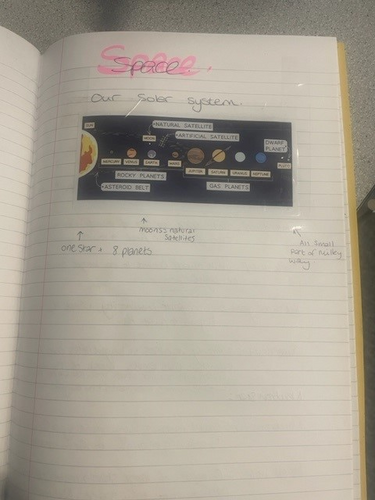 Space.
Our Solar System.
SUN
NATURAL SATELLITE
MOON
ARTIFICIAL SATELLITE
DWARF PLANET
MERCURY VENUS EARTH MARS JUPITER SATURN URANUS NEPTUNE PLUTO
ROCKY PLANETS
GAS PLANETS
ASTEROID BELT
one star + 8 planets
natural
Satellites
All Small
Part of
way